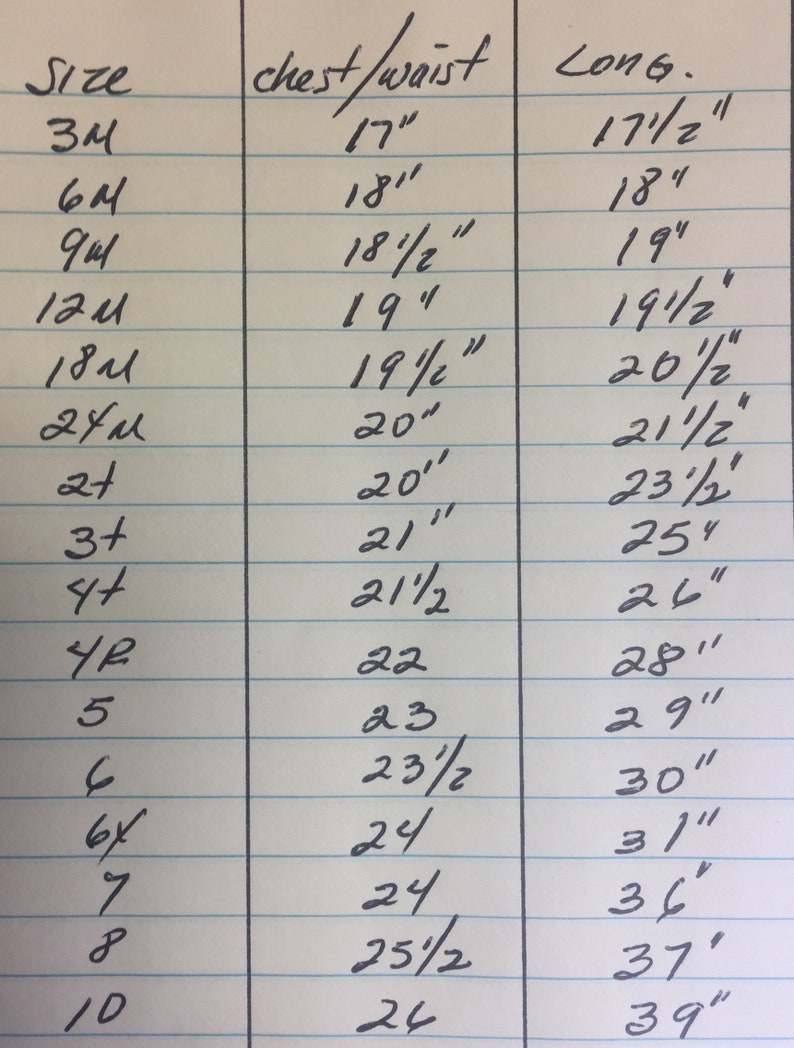 Size chest/waist Long.
3M 17" 17 1/2"
6M 18" 18"
9M 18 1/2" 19"
12M 19" 19 1/2"
18M 19 1/2" 20 1/2"
24M 20" 21 1/2"
2t 20" 23 1/2"
3t 21" 25"
4t 21 1/2 26"
4R 22 28"
5 23 29"
6 23 1/2 30"
6X 24 31"
7 24 36"
8 25 1/2 37"
10 26 39"